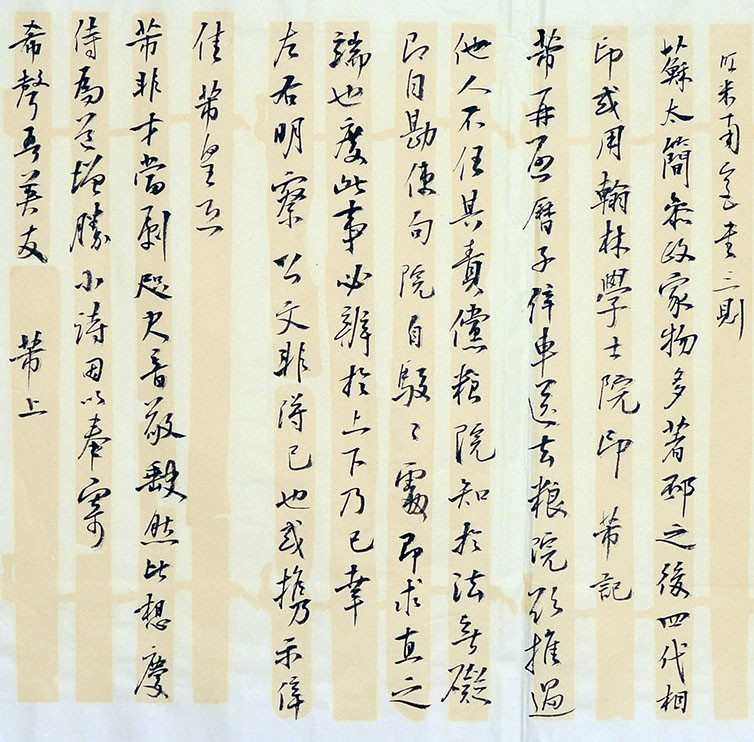 臨米南宮書三則
蘇太簡參政家物多著邳之後四代相
印或用翰林學士院印 芾記
芾再啟曆子倅車送去粮院欲推過
他人不任其責儻粮院知於法無礙
即自勘使句院自駁々處即求直之
端也度此事必辨於上下乃已幸
左右明察公文非得已也或攜示倅
佳 芾皇恐
芾非才當劇咫尺音敬缺然比想慶
侍為道增勝小詩因以奉寄
希聲吾英友 芾上